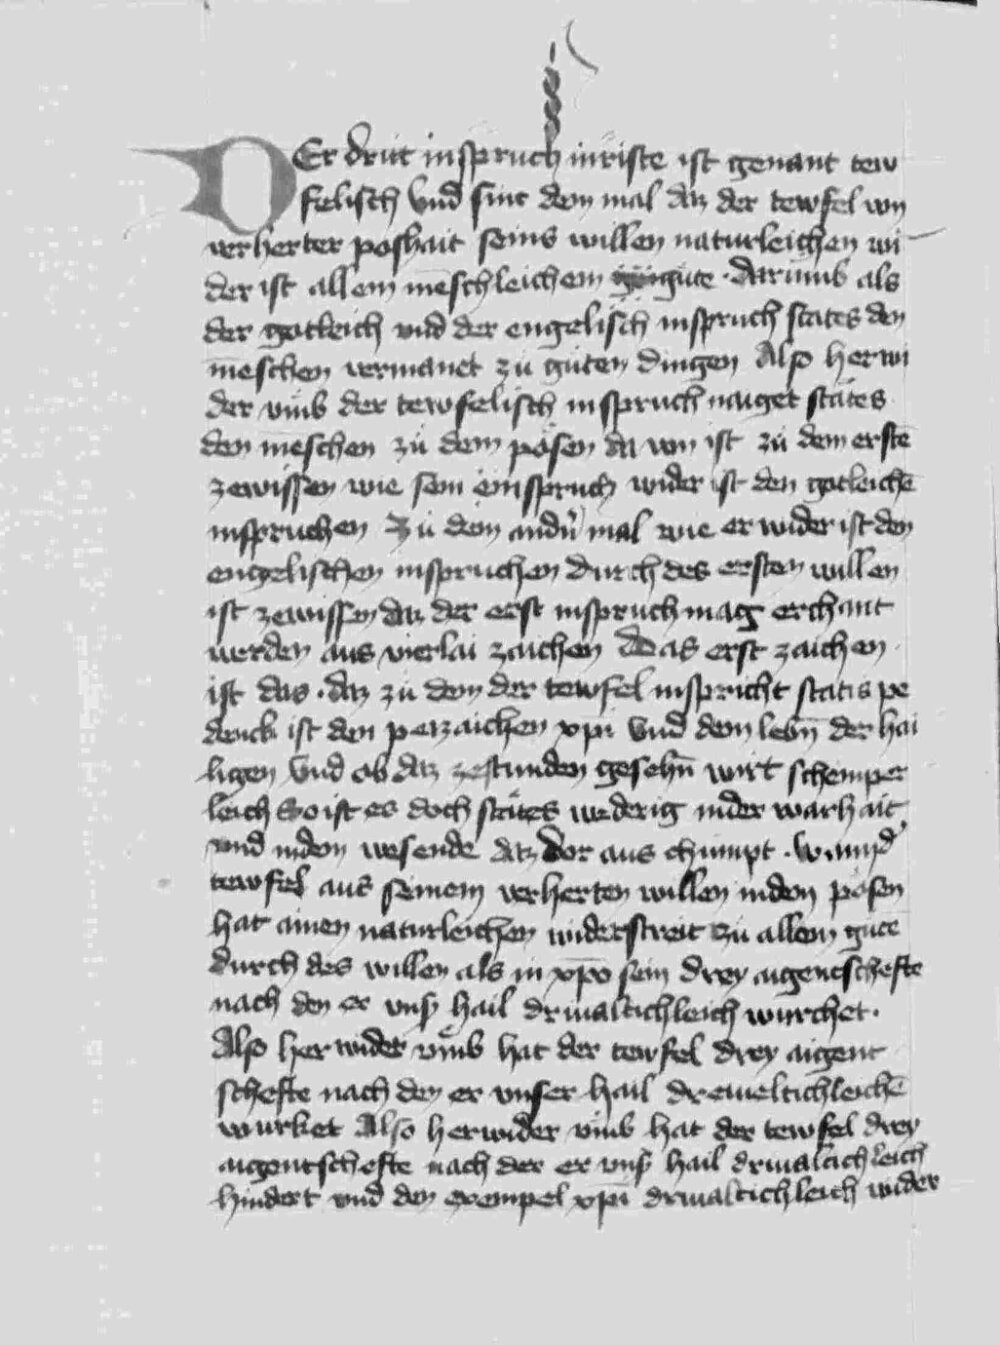 DEr dritt inspruch inriste ist genant tew
felisch Vnd sint dem mal daz der tewfel von
verherter poshait seins willen naturleichen wi
der ist allem meschleichem güte · darumb als
der gotleich vnd der engelisch inspruch states den
meschen vermanet zu guten dingen Also herwi
der vmb der tewfelisch inspruch naiget states
den meschen zu dem pösen da von ist zu dem erste
zewissen wie sein einspruch wider ist den gotleiche
inspruchen Zu dem andn mal wie er wider ist den
engelischen inspruchen durch des ersten willen
ist zewissen daz der erst inspruch mag erchant
werden aus vierlai zaichen Das erst zaichen
ist das · daz zu dem der tewfel inspricht statis pe
deuck ist den pezaichen xpi Vnd dem lebn der hai
ligen Vnd ob daz zestunden gesehn wirt schemper
leich So ist es doch states wederig inder warhait
vnd indem wesende daz dor aus chumpt ·
tewfel aus seinem verherten willen indem pösen
hat ainen naturleichen widerstreit zu allem gute
durch des willen als in xpo sein drey aigentschefte
nach den er vnser hail driualtichleich wurchet ·
Also herwider vmb hat der tewfel drey aigent
schefte nach den er vnser hail dreueltichleiche
wurket Also herwider vmb hat der tewfel drey
aigentschefte nach der er vnser hail driualtichleich
hindert vnd den exempel xpi driualtichleich wider